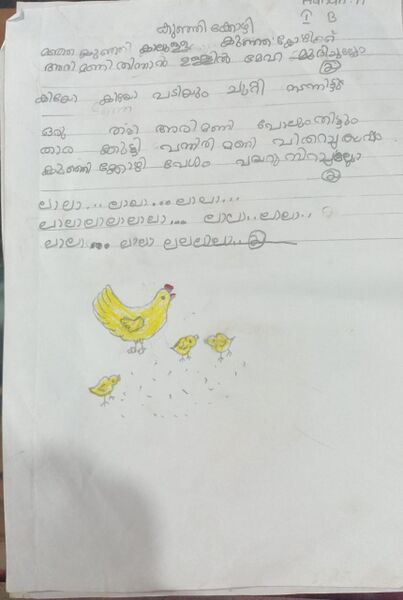 I B
കുഞ്ഞിക്കോഴി
മഞ്ഞ കുഞ്ഞി കാലുള്ള... കുഞ്ഞു കോഴിക്ക്
അരി മണി തിന്നാൻ ഉള്ളിൽ മോഹ മുദിച്ചല്ലോ
കിയോ കിയോ പടിയും ചുറ്റി നടന്നിട്ടും
ഒരു തരി അരിമണി പോലും കിട്ടീല
താര കുട്ടി വന്നിതി മണി വിതറിയപ്പം
കുഞ്ഞിക്കോഴി വേഗം വയറു നിറച്ചല്ലോ
ലാലാ... ലാലാ... ലാലാ...
ലാലാലാലാലാലാ... ലാലാ..ലാലാ..
ലാലാ... ലാലാ ലലലലാ..